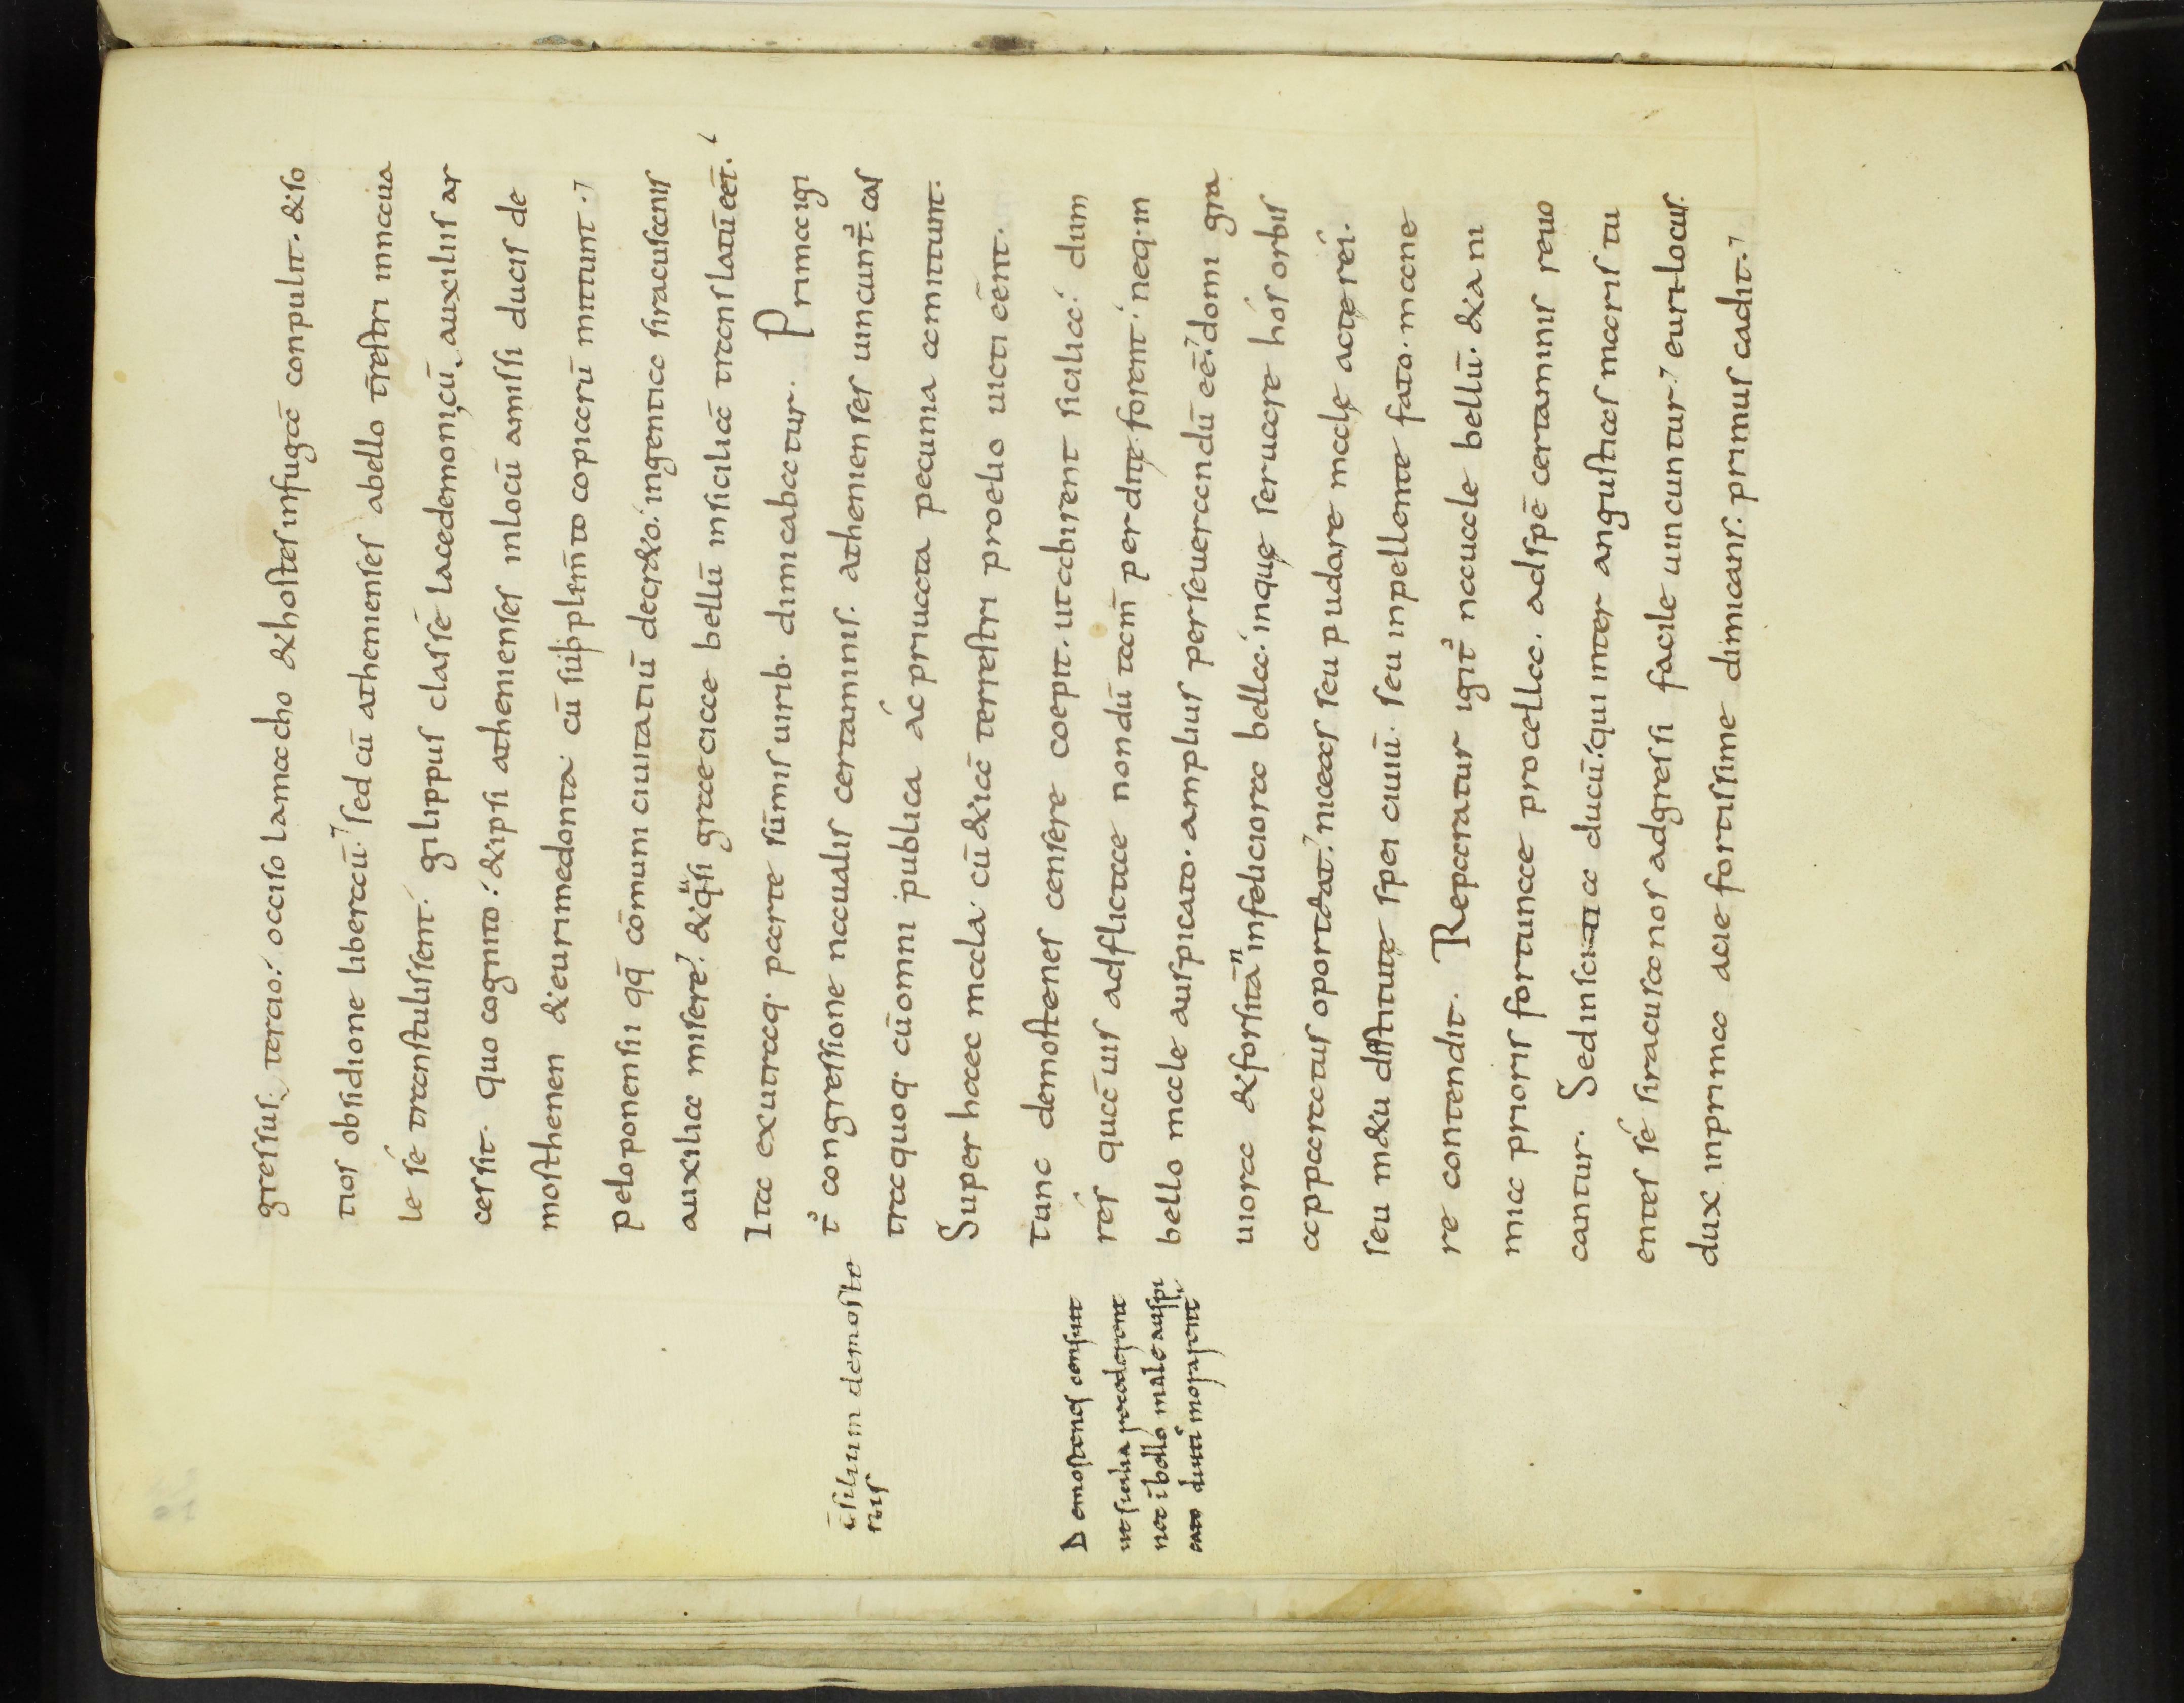 gressus; tercio: occiso lamacho & hostes infugā conpulit. & so
tios obsidione liberaū. sed cū athenienses abello t̄restri innaua
le sé transtulissent. gilippus classē lacedemonicū, auxiliis ar
cessit. quo cognito: & ipsi athenienses inlocū amissi ducis de
mosthenen & eurimedonta cū supplem̄to copiarū mittunt.
peloponensii qq̄ cōmuni ciuitatiū decr&o. ingentia siracusanis
auxilia misere. & qͣsi graeciae bellū insiciliā translatū eēt.
Ita exutraq. parte sūmis uirib. dimicabatur. Prima igi
t᷒ congressione naualis certaminis. athenienses uincunt᷒. cas
traquoq. cūomni publica ác priuata pecunia amittunt.
Super haec mala cū & iā terrestri proelio uicti eēnt.
Tunc demostenes censere coepit. utabirent sicilia. dum
rés quāuis adflictae nondū tam̄ perditę forent. neq. in
bello male auspicato. amplius perseuerandū eē. domi gra
uiora & forsitān infeliciora bella. inquę seruare hós orbis
apparatus oport&at. nicias seu pudore male actę réi.
seu m&u dístitutę spei ciuiū. seu inpellente fato. mane
re contendit. Reparatur igit᷒ nauale bellū. & a ni
mia prioris fortunae procella. adspē certaminis reuo
cantur. Sed inscitia ducū. qui inter angustias maris tu
entes sé siracusanos adgressi facile uincuntur. eurilocus.
dux inprima acie fortissime dimicans. primus cadit.
c̄silium demoste
nis
Demostenes censuit
ut sicilia recederent
nec ī bello male auspi
cato diuti morarent